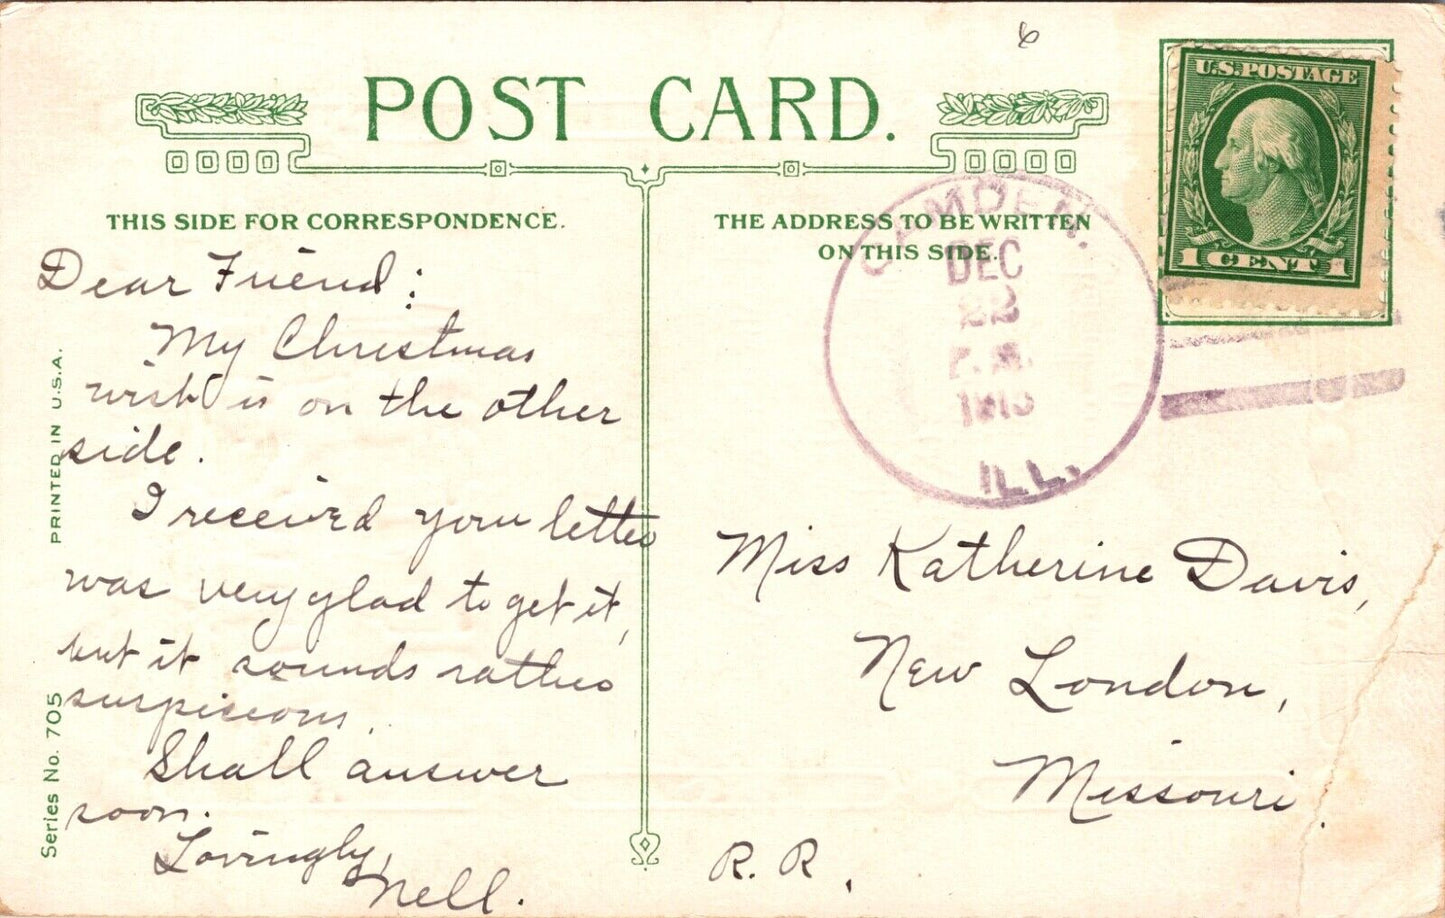 6
POST CARD.
U.S. POSTAGE
1 CENT 1
THIS SIDE FOR CORRESPONDENCE.
THE ADDRESS TO BE WRITTEN
ON THIS SIDE.
CAMDEN.
DEC
22
ILL.
Dear Friend:
My Christmas
wish is on the other
side.
I received your letter
was very glad to get it,
but it sounds rather
suspicious.
Shall answer
soon.
Lovingly,
Nell.
PRINTED IN U.S.A.
Series No. 705
Miss Katherine Davis,
New London,
Missouri.
R. R.